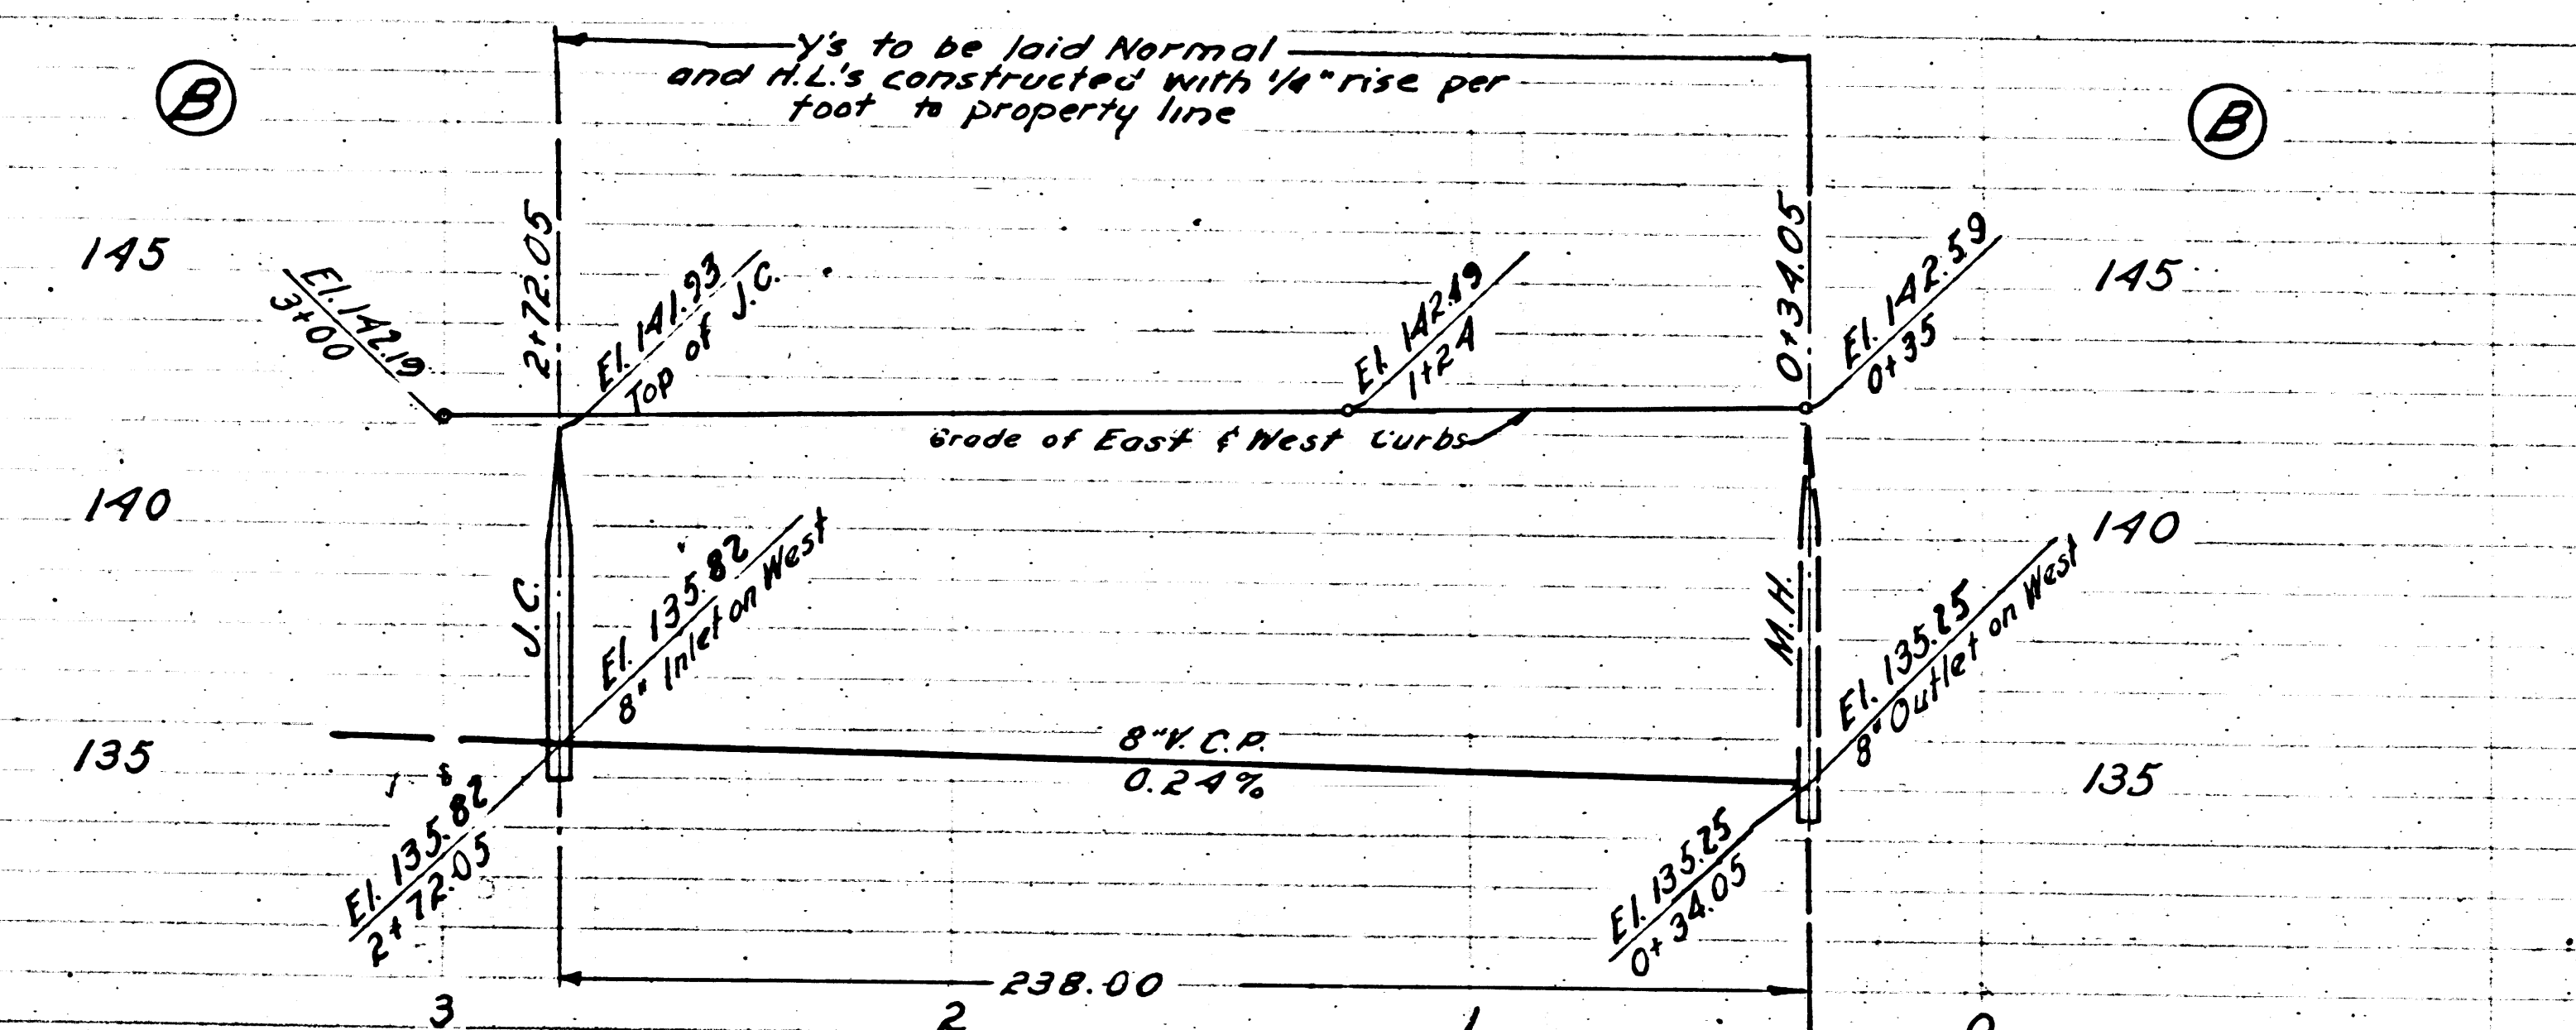 Y's to be laid Normal
and H.L.'s constructed with 1/4" rise per
foot to property line
B
B
145
El. 142.19
3+00
2+72.05
El. 141.93
Top of J.C.
El. 142.49
1+24
0+34.05
El. 142.59
0+35
145
Grade of East & West Curbs
140
J.C.
El. 135.82
8" Inlet on West
M.H.
El. 135.25
8" Outlet on West
140
135
8" V.C.P.
0.24%
135
El. 135.82
2+72.05
El. 135.25
0+34.05
238.00
3
2
1
0